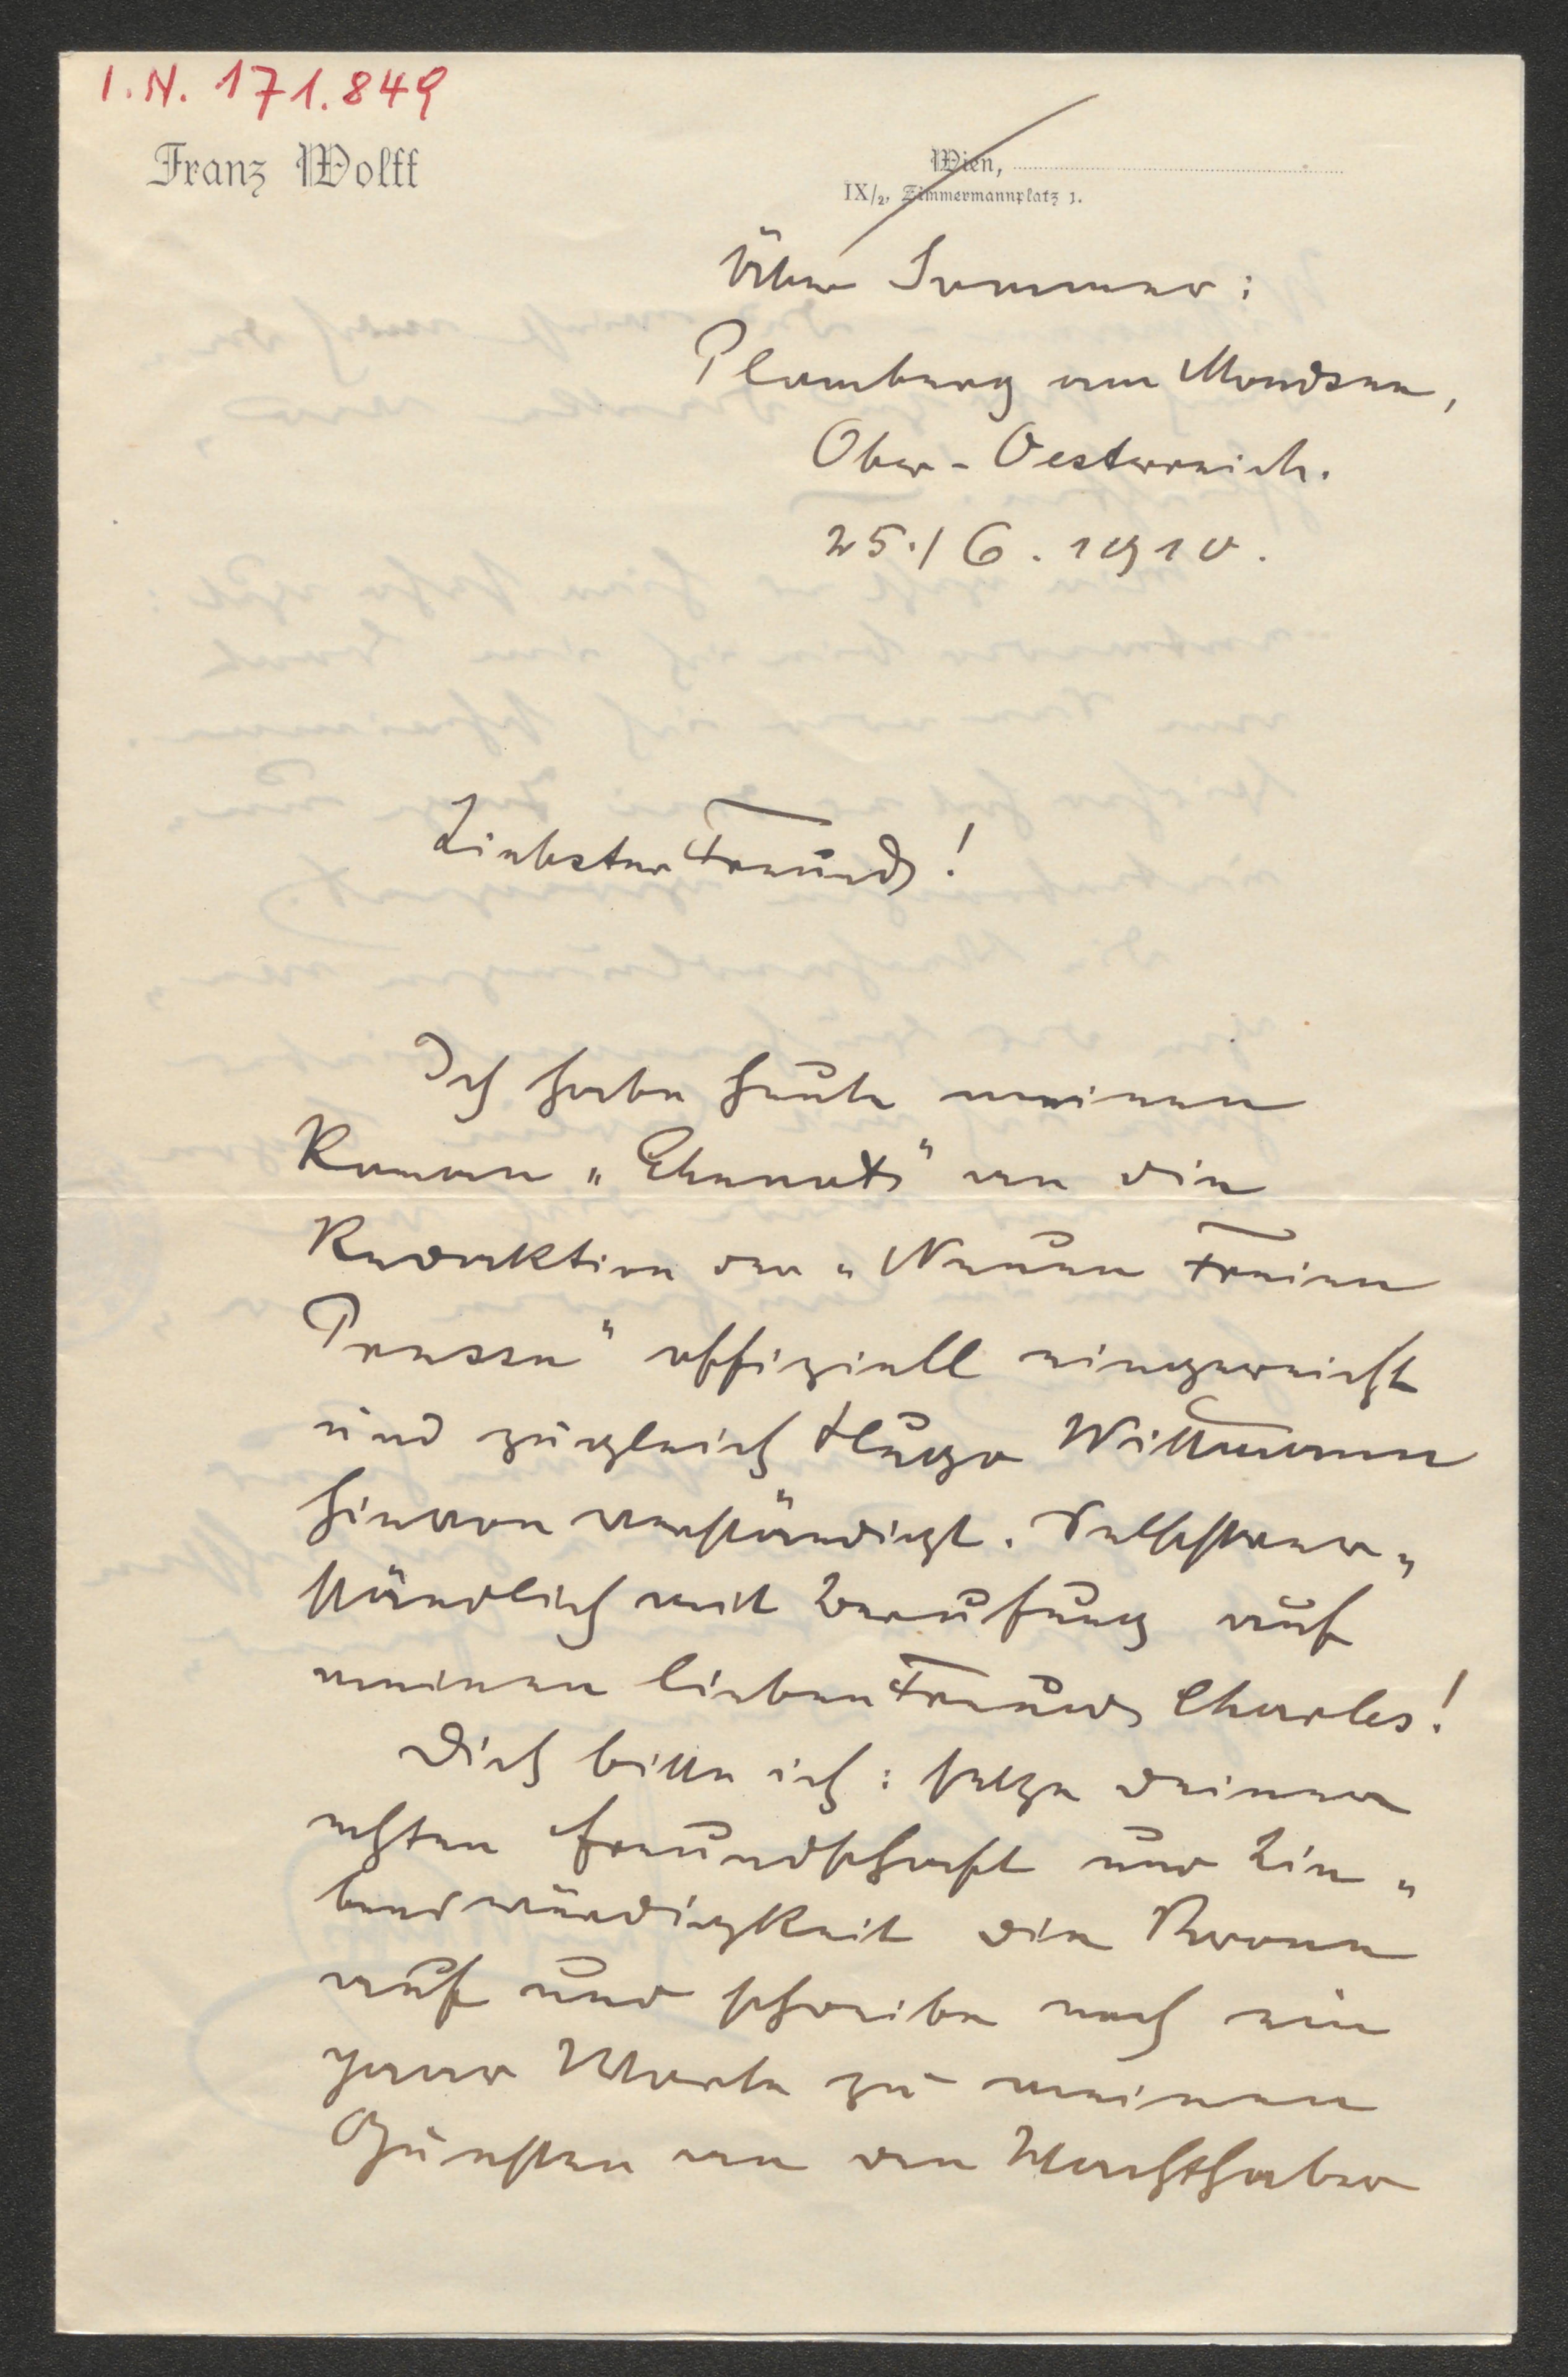 I.N. 171.849
Franz Wolff
Wien,
IX/2, Zimmermannplatz 1.
Über Sommer:
Plomberg am Mondsee,
Ober-Oesterreich.
25./6. 1910.
Liebster Freund!
Ich habe heute meinen
Roman „Ehenot" an die
Redaktion der „Neuen Freien
Presse" offiziell eingereicht
und zugleich Hugo Wittmann
hievon verständigt. Selbstver-
ständlich mit Berufung auf
meinen lieben Freund Charles!
Dich bitte ich: setze deiner
echten Freundschaft und Lie-
benswürdigkeit die Krone
auf und schreibe noch ein
paar Worte zu meinen
Gunsten an den Machthaber